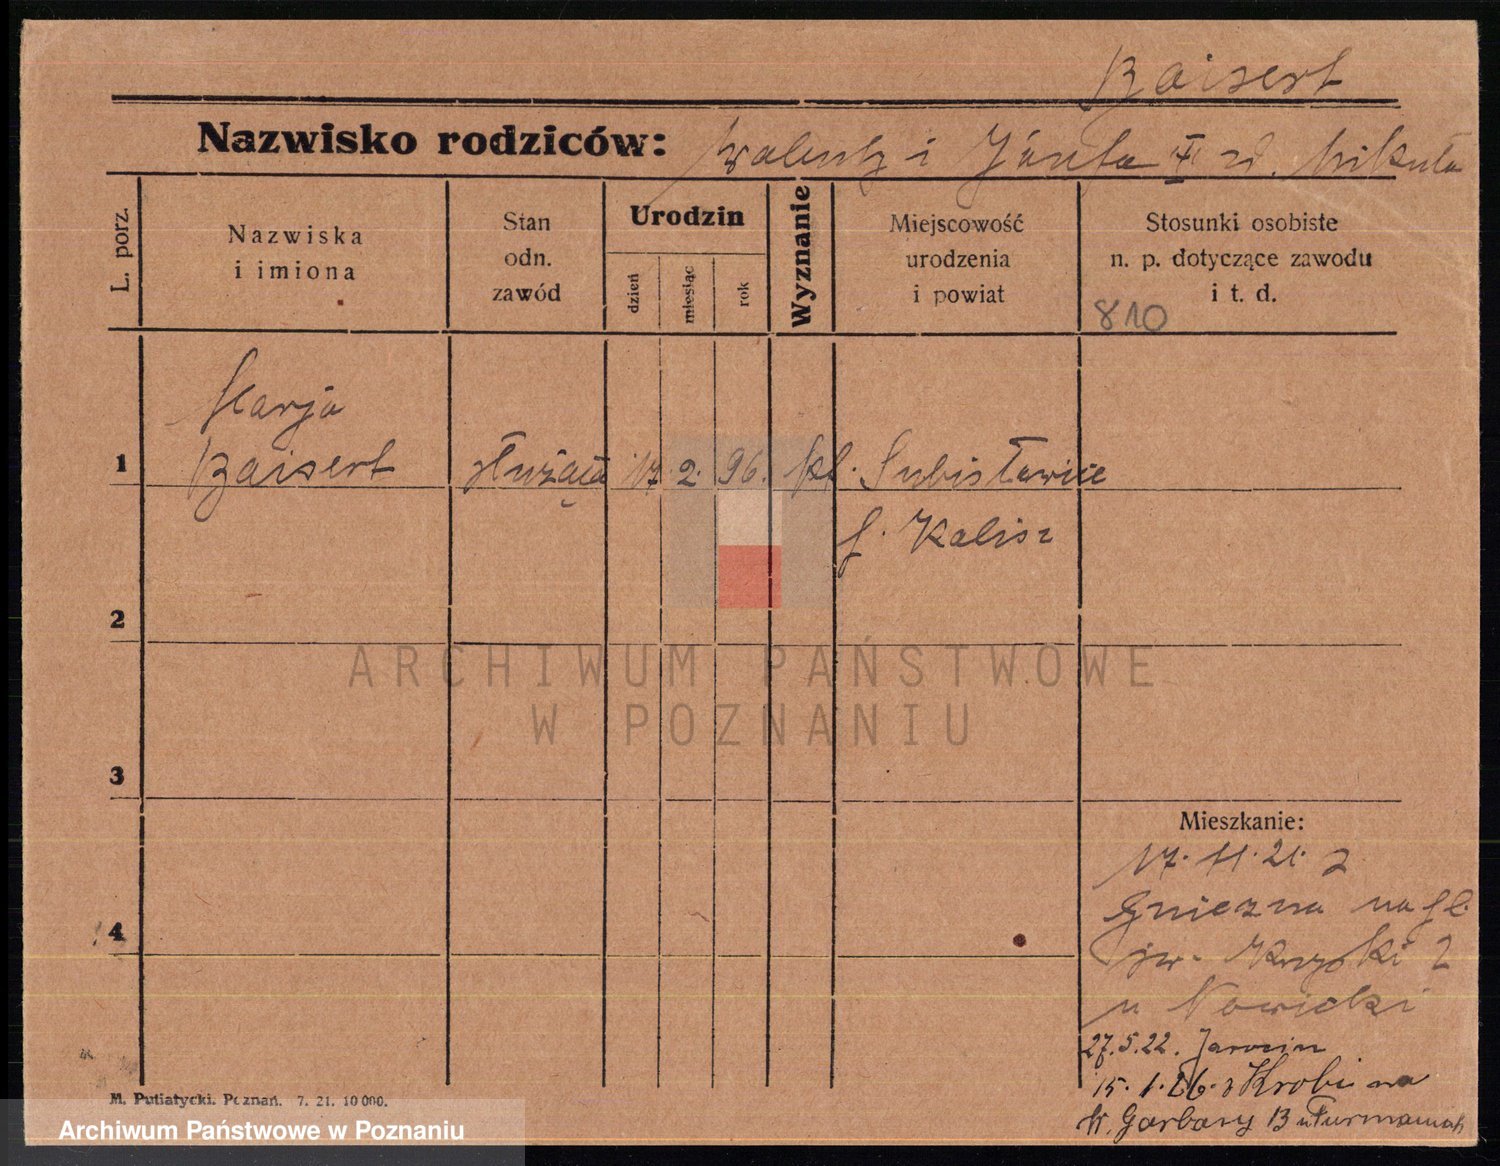 Baisert
Nazwisko rodziców: Walenty i Józefa z d. Mikuła
L. porz.
Nazwiska
i imiona
Stan
odn.
zawód
Urodzin
dzień
miesiąc
rok
Wyznanie
Miejscowość
urodzenia
i powiat
Stosunki osobiste
n. p. dotyczące zawodu
i t. d.
810
Marja
1 Baisert służąca 17. 2. 96. kt. Subisławice
p. Kalisz
2
3
4
Mieszkanie:
17. 11. 21. z
Gniezna na pl.
św. Krzyski 2
u Nowicki
27.5.22. Jarocin
15. 1. 26. z Krobi na
W. Garbary 13 u Furmaniak
M. Putiatycki. Poznań. 7. 21. 10 000.
ARCHIWUM PAŃSTWOWE
W POZNANIU
Archiwum Państwowe w Poznaniu